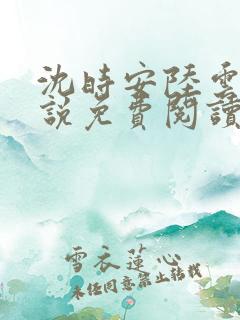 沈時安陸雲
說免費閱讀
雪衣蓮心
未經同意禁止轉載